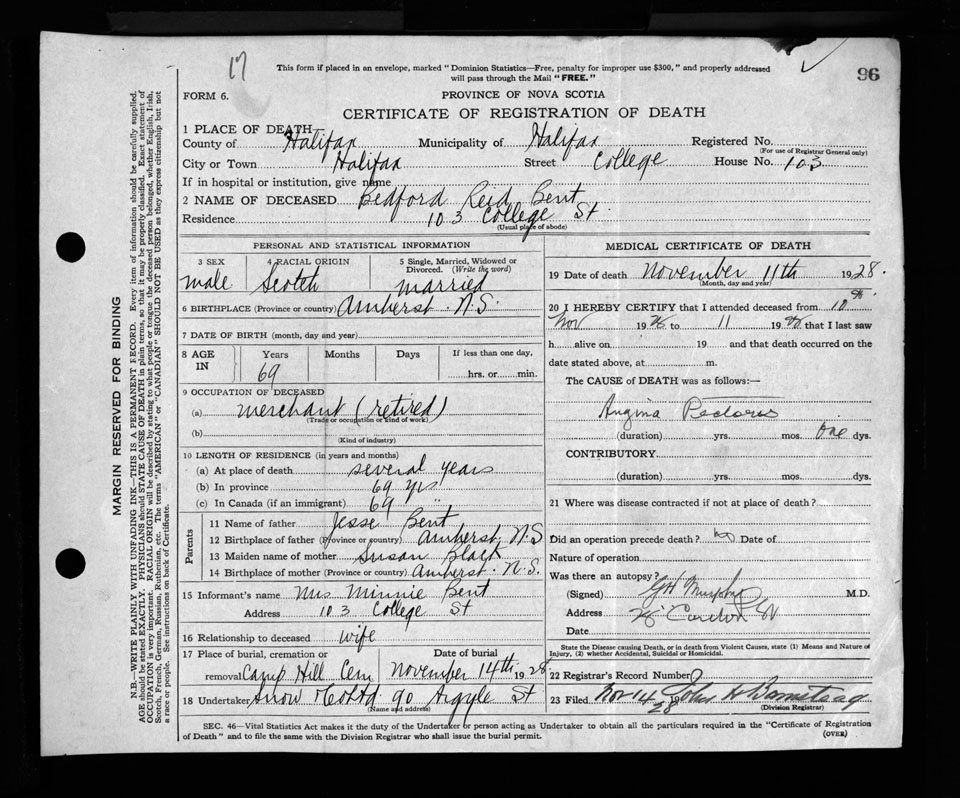 17
This form if placed in an envelope, marked "Dominion Statistics—Free, penalty for improper use $300," and properly addressed
will pass through the Mail "FREE."
96
FORM 6.
PROVINCE OF NOVA SCOTIA
CERTIFICATE OF REGISTRATION OF DEATH
1 PLACE OF DEATH
County of Halifax Municipality of Halifax Registered No.
(For use of Registrar General only)
City or Town Halifax Street College House No. 103
If in hospital or institution, give name
2 NAME OF DECEASED Bedford Reid Bent
Residence 103 College St
(Usual place of abode)
PERSONAL AND STATISTICAL INFORMATION
3 SEX 4 RACIAL ORIGIN 5 Single, Married, Widowed or Divorced. (Write the word)
male Scotch married
6 BIRTHPLACE (Province or country) Amherst N.S.
7 DATE OF BIRTH (month, day and year)
8 AGE IN Years Months Days If less than one day,
69 hrs. or min.
9 OCCUPATION OF DECEASED
(a) merchant (retired)
(Trade occupation or kind of work)
(b)
(Kind of industry)
10 LENGTH OF RESIDENCE (in years and months)
(a) At place of death several years
(b) In province 69 yrs
(c) In Canada (if an immigrant) 69 "
Parents
11 Name of father Jesse Bent
12 Birthplace of father (Province or country) Amherst, N.S
13 Maiden name of mother Susan Black
14 Birthplace of mother (Province or country) Amherst. N.S.
15 Informant's name Mrs Minnie Bent
Address 103 College St
16 Relationship to deceased wife
17 Place of burial, cremation or removal Date of burial
Camp Hill Cem November 14th 1928
18 Undertaker Snow & Co Ltd 90 Argyle St
(Name and address)
MEDICAL CERTIFICATE OF DEATH
19 Date of death November 11th 1928.
(Month, day and year)
20 I HEREBY CERTIFY that I attended deceased from 10th
Nov 19 to 11 19 that I last saw
h alive on 19 and that death occurred on the
date stated above, at m.
The CAUSE of DEATH was as follows:—
Angina Pectoris
(duration) yrs. mos. One dys.
CONTRIBUTORY
(duration) yrs. mos. dys.
21 Where was disease contracted if not at place of death?
Did an operation precede death? no Date of
Nature of operation
Was there an autopsy?
(Signed) Murphy M.D.
Address
Date
State the Disease causing Death, or in death from Violent Causes, state (1) Means and Nature of
Injury, (2) whether Accidental, Suicidal or Homicidal.
22 Registrar's Record Number
23 Filed Nov 14 28 John H Barnstead
(Division Registrar)
SEC. 46—Vital Statistics Act makes it the duty of the Undertaker or person acting as Undertaker to obtain all the particulars required in the "Certificate of Registration
of Death" and to file the same with the Division Registrar who shall issue the burial permit.
(OVER)
MARGIN RESERVED FOR BINDING
N.B.—WRITE PLAINLY WITH UNFADING INK—THIS IS A PERMANENT RECORD. Every item of information should be carefully supplied.
AGE should be stated EXACTLY. PHYSICIANS should STATE CAUSE OF DEATH in plain terms, so that it may be properly classified. Exact statement of
OCCUPATION is very important. RACIAL ORIGIN will be described by stating to what people or tongue the deceased person belonged, whether English, Irish,
Scotch, French, German, Russian, Ruthenian, etc. The terms "AMERICAN" or "CANADIAN" SHOULD NOT BE USED as they express citizenship but not
a race or people. See instructions on back of Certificate.